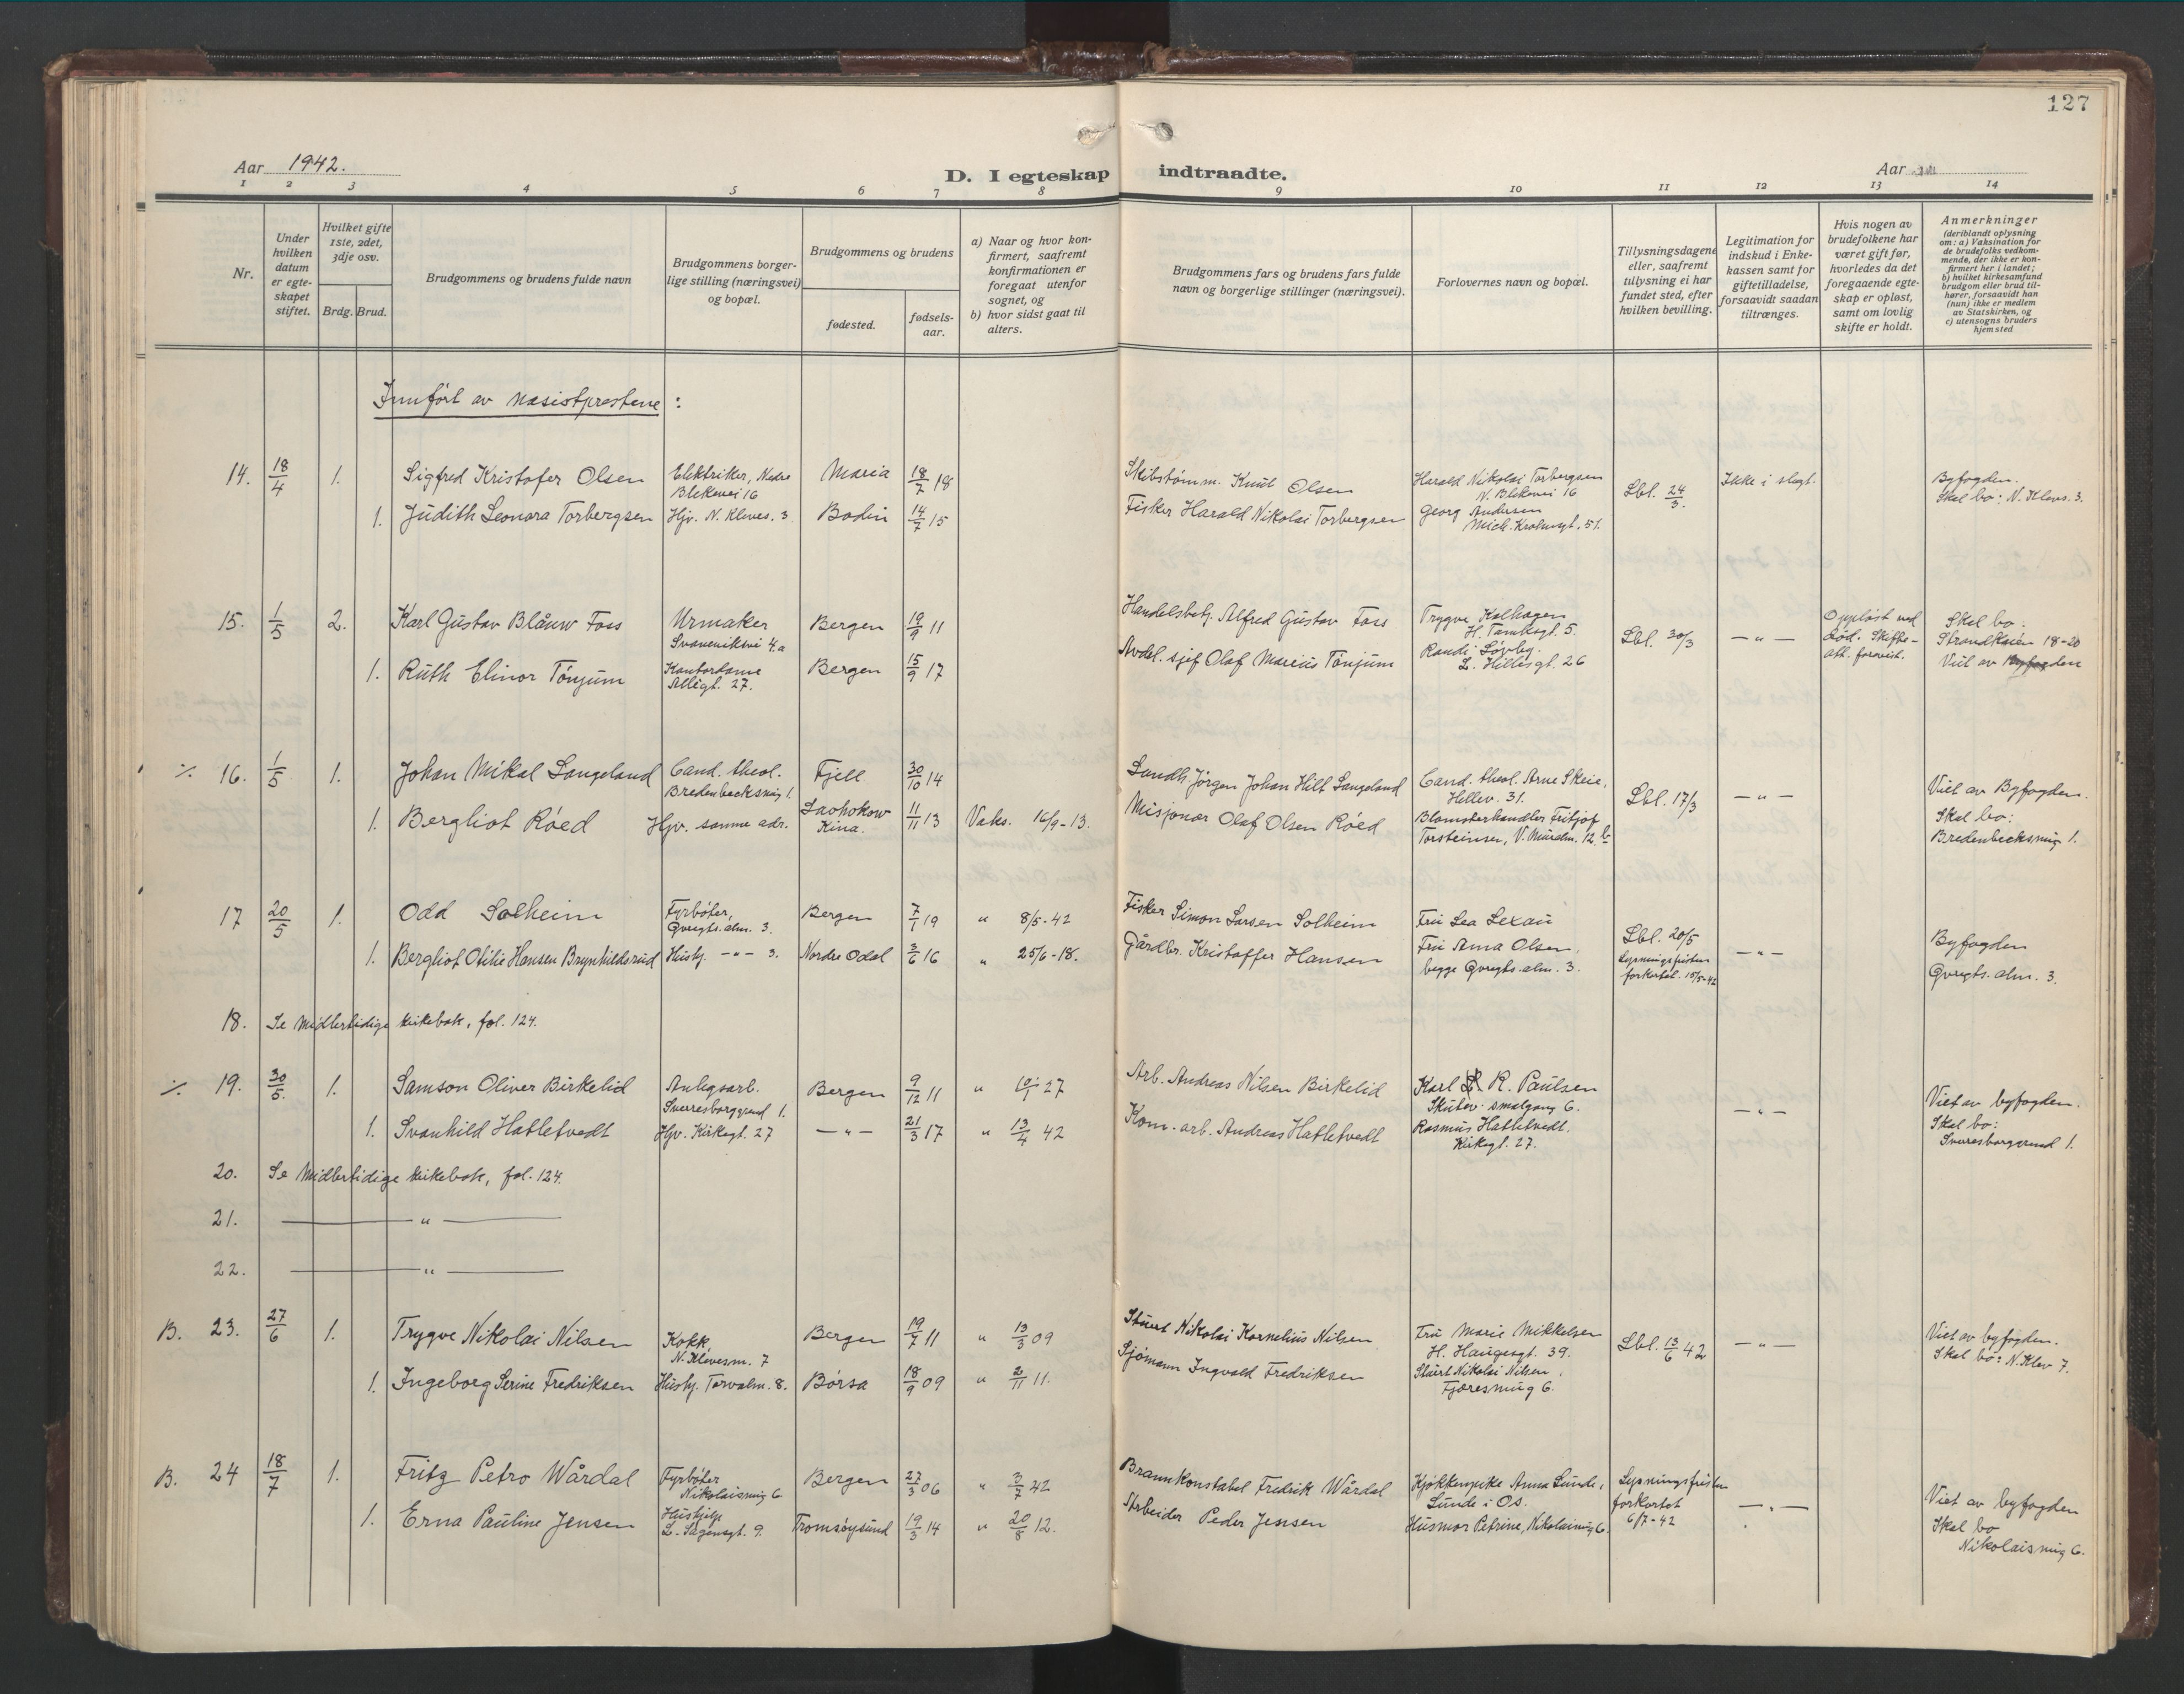 127
Aar 1942.
D. I egteskap indtraadte.
Aar
1 2 3 4 5 6 7 8 9 10 11 12 13 14
Nr.
Under hvilken datum er egteskapet stiftet.
Hvilket gifte 1ste, 2det, 3dje osv.
Brdg. Brud.
Brudgommens og brudens fulde navn
Brudgommens borgerlige stilling (næringsvei) og bopæl.
Brudgommens og brudens
fødested.
fødselsaar.
a) Naar og hvor konfirmert, saafremt konfirmationen er foregaat utenfor sognet, og
b) hvor sidst gaat til alters.
Brudgommens fars og brudens fars fulde navn og borgerlige stillinger (næringsvei).
Forlovernes navn og bopæl.
Tillysningsdagene eller, saafremt tillysning ei har fundet sted, efter hvilken bevilling.
Legitimation for indskud i Enkekassen samt for giftetilladelse, forsaavidt saadan tiltrænges.
Hvis nogen av brudefolkene har været gift før, hvorledes da det foregaaende egteskap er opløst, samt om lovlig skifte er holdt.
Anmerkninger (deriblandt oplysning om: a) Vaksination for de brudefolks vedkommende, der ikke er konfirmert her i landet; b) hvilket kirkesamfund brudgom eller brud tilhører, forsaavidt han (hun) ikke er medlem av Statskirken, og c) utensogns bruders hjemsted
Innført av nasistprestene:
14. 18/4 1. Sigfred Kristofer Olsen Elektriker, Nedre Blekevei 16 Maria 18/7 18 Skibstømm. Knut Olsen Harald Nikolai Torbergsen N. Blekevei 16 Lbl. 24/3. Ikke i slegt. Byfogden. Skal bo: N. Kleves. 3.
1. Judith Leonora Torbergsen Hjv. N. Kleves. 3 Bodin 14/7 15 Fisker Harald Nikolai Torbergsen Georg Andersen Mich. Krohnsgt. 51.
15. 1/5 2. Karl Gustav Blåuw Foss Urmaker Svaneviksvei 4.a Bergen 19/9 11 Handelsbetj. Alfred Gustav Foss Trygve Kalhagen H. Tanksgt. 5. Lbl. 30/3 — " — Oppløst ved død. Skifteatt. forevist. Skal bo: Strandkaien 18-20 Viet av Byfogden
1. Ruth Elinor Tönjum Kontordame Allégt. 27. Bergen 15/9 17 Avdel. sjef Olaf Marcius Tönjum Randi Lovby. L. Hillesgt. 26
·/. 16. 1/5 1. Johan Mikal Langeland Cand. theol. Bredenbecksmug 1. Fjell 30/10 14 Landh. Jörgen Johan Hilt Langeland Cand. theol. Arne Skeie, Hellev. 31. Lbl. 17/3 — " — Viet av Byfogden. Skal bo: Bredenbecksmug 1.
1. Bergliot Röed Hjv. samme adr. Laohokow Kina. 11/11 13 Vaks. 16/9-13. Misjonær Olaf Olsen Röed Blomsterhandler Fritjof Torsteinsen, V. Muralm. 12 b
17 20/5 1. Odd Solheim Fyrböter, Qvregts. alm. 3. Bergen 7/1 19 " 8/5-42 Fisker Simon Larsen Solheim Fru Lea Lexau Lbl. 20/5 Lysningsfristen forkortet. 15/5-42 — " — Byfogden Qvregts. alm. 3.
1. Bergliot Otilie Hansen Brynhildsrud Hushj. — " — 3. Nordre Odal 3/6 16 " 25/6-18. Gårdbr. Kristoffer Hansen Fru Anna Olsen, begge Qvregts. alm. 3.
18. Se Midlertidige kirkebok, fol. 124.
·/. 19. 30/5. 1. Samson Oliver Birkelid Anlegsarb. Sverresborggrend 1. Bergen 9/12 11 " 10/1 27 Arb. Andreas Nilsen Birkelid Karl R. Paulsen Skutev. smalgang 6. — " — Viet av byfogden. Skal bo: Sverresborggrend 1.
1. Svanhild Hatletvedt Hjv. Kirkegt. 27 — " — 21/3 17 " 13/4 42 Kom. arb. Andreas Hatletvedt Rasmus Hatletvedt, Kirkegt. 27.
20. Se Midlertidige kirkebok, fol. 124.
21. — " —
22. — " —
B. 23. 27/6 1. Trygve Nikolai Nilsen Kokk, N. Klevesm. 7 Bergen 19/7 11 " 13/3 09 Stuert Nikolai Kornelius Nilsen Fru Marie Mikkelsen H. Haugesgt. 39. Lbl. 13/6 42 — " — Viet av byfogden. Skal bo: N. Klev 7.
1. Ingeborg Serine Fredriksen Hushj. Torvalm. 8. Börsa 18/9 09 " 2/11 11. Sjömann Ingvald Fredriksen Stuert Nikolai Nilsen, Fjæresmug 6.
B. 24 18/7 1. Fritz Petro Wårdal Fyrböter Nikolaismug 6 Bergen 27/3 06 " 3/7 42 Brannkonstabel Fredrik Wårdal Kjøkkenpike Anna Lunde, Lunde i Os. Lysningsfristen forkortet 6/7-42 — " — Viet av byfogden Skal bo Nikolaismug 6.
1. Erna Pauline Jensen Hushjelp L. Sagensgt. 9. Tromsöysund 19/3 14 " 20/8 12. Arbeider Peder Jensen Husmor Petrine, Nikolaismug 6.